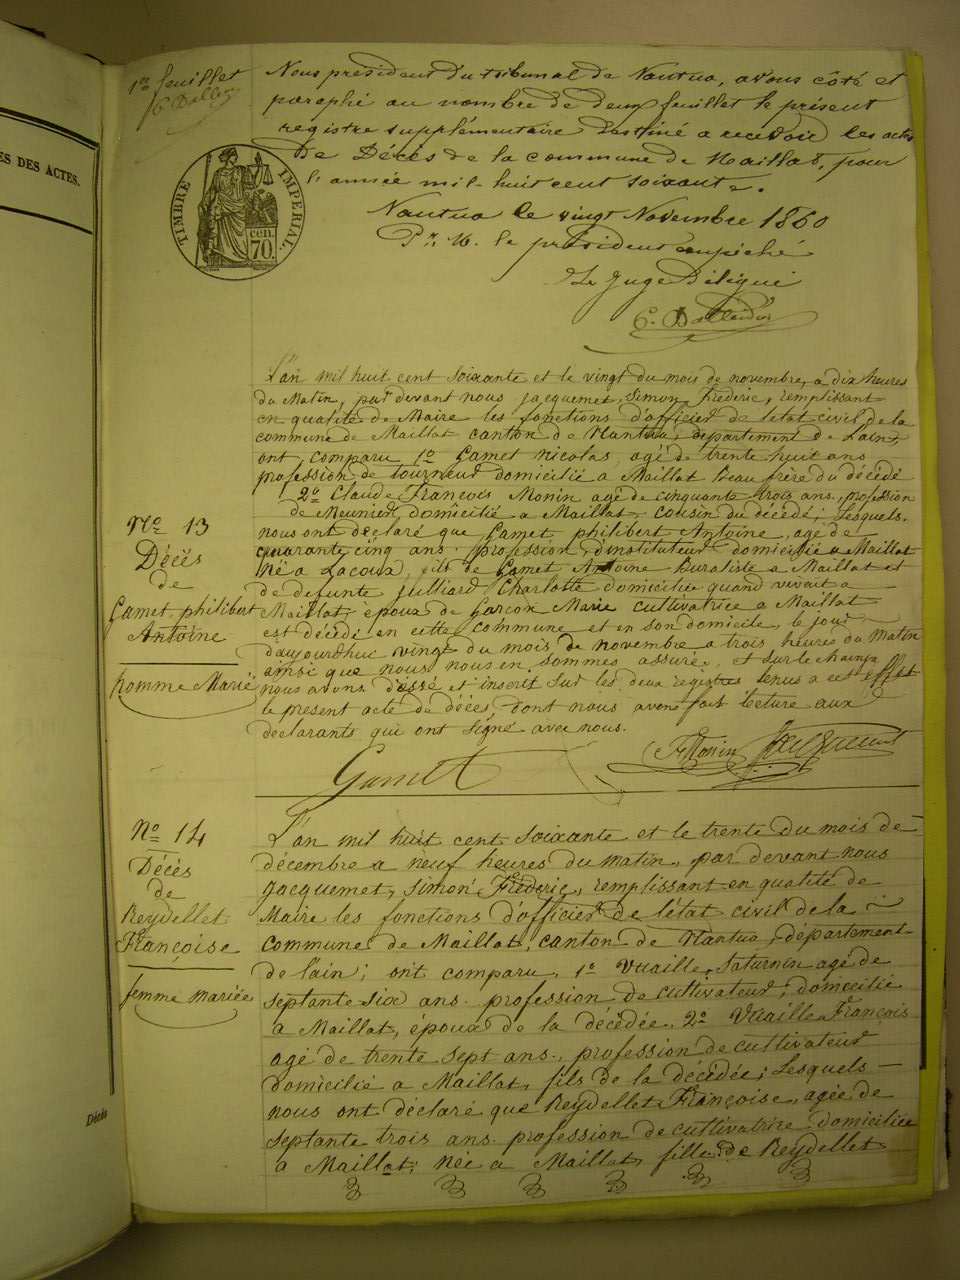 ES DES ACTES.
1er feuillet
Nous président du tribunal de Nantua, avons côté et
paraphé au nombre de deux feuillet le présent
registre supplémentaire destiné a recevoir les actes
De Décès de la commune de Maillat, pour
l'année mil-huit cent soixante.
Nantua le vingt Novembre 1860
le président empêché
Le Juge Délégué
TIMBRE IMPERIAL.
70. cen.
L'an mil huit cent soixante et le vingt du mois de novembre, a dix heures
du Matin, par devant nous Jacquemet, Simon Frédéric, remplissant
en qualité de Maire les fonctions d'officier de l'état civil de la
commune de Maillat canton de Nantua, département de l'ain,
ont comparu 1o Gamet Nicolas, agé de trente huit ans
profession de tourneur domicilié a Maillat beau frère du décédé
2o Claude François Monin agé de cinquante trois ans, profession
de Meunier domicilié a Maillat, cousin du décédé; Lesquels
nous ont déclaré que Gamet philibert Antoine, agé de
quarante cinq ans, profession d'instituteur domicilié a Maillat
Né a Lacoux, fils de Gamet Antoine buraliste a Maillat et
de defunte Julliard Charlotte domicilié quand vivait a
Maillat, époux de Garcon Marie cultivatrice a Maillat
est décédé en cette commune et en son domicile, le jour
d'aujourdhui vingt du mois de novembre a trois heures du Matin
ainsi que nous nous en sommes assuré, et sur le champ
nous avons dressé et inscrit sur les deux registres tenus a cet effet
le present acte de décès, dont nous avons fait lecture aux
declarants qui ont signé avec nous.
No 13
Décès
de
Gamet philibert
Antoine
homme Marié
Gamet
FMonin Jacquemet
No 14
Décès
de
Reydellet
Françoise
femme mariée
L'an mil huit cent soixante et le trente du mois de
décembre a neuf heures du matin, par devant nous
Jacquemet, Simon Fréderic, remplissant en qualité de
Maire les fonctions d'officier de l'état civil de la
commune de Maillat, canton de Nantua, département
de l'ain; ont comparu, 1o Vuaille, Saturnin agé de
septante six ans, profession de cultivateur, domicilié
a Maillat, époux de la décédée, 2o Vuaille François
agé de trente sept ans, profession de cultivateur
domicilié a Maillat, fils de la décédée; Lesquels
nous ont déclaré que Reydellet Françoise, agée de
septante trois ans profession de cultivatrice domiciliée
a Maillat, née a Maillat, fille de Reydellet
Décès